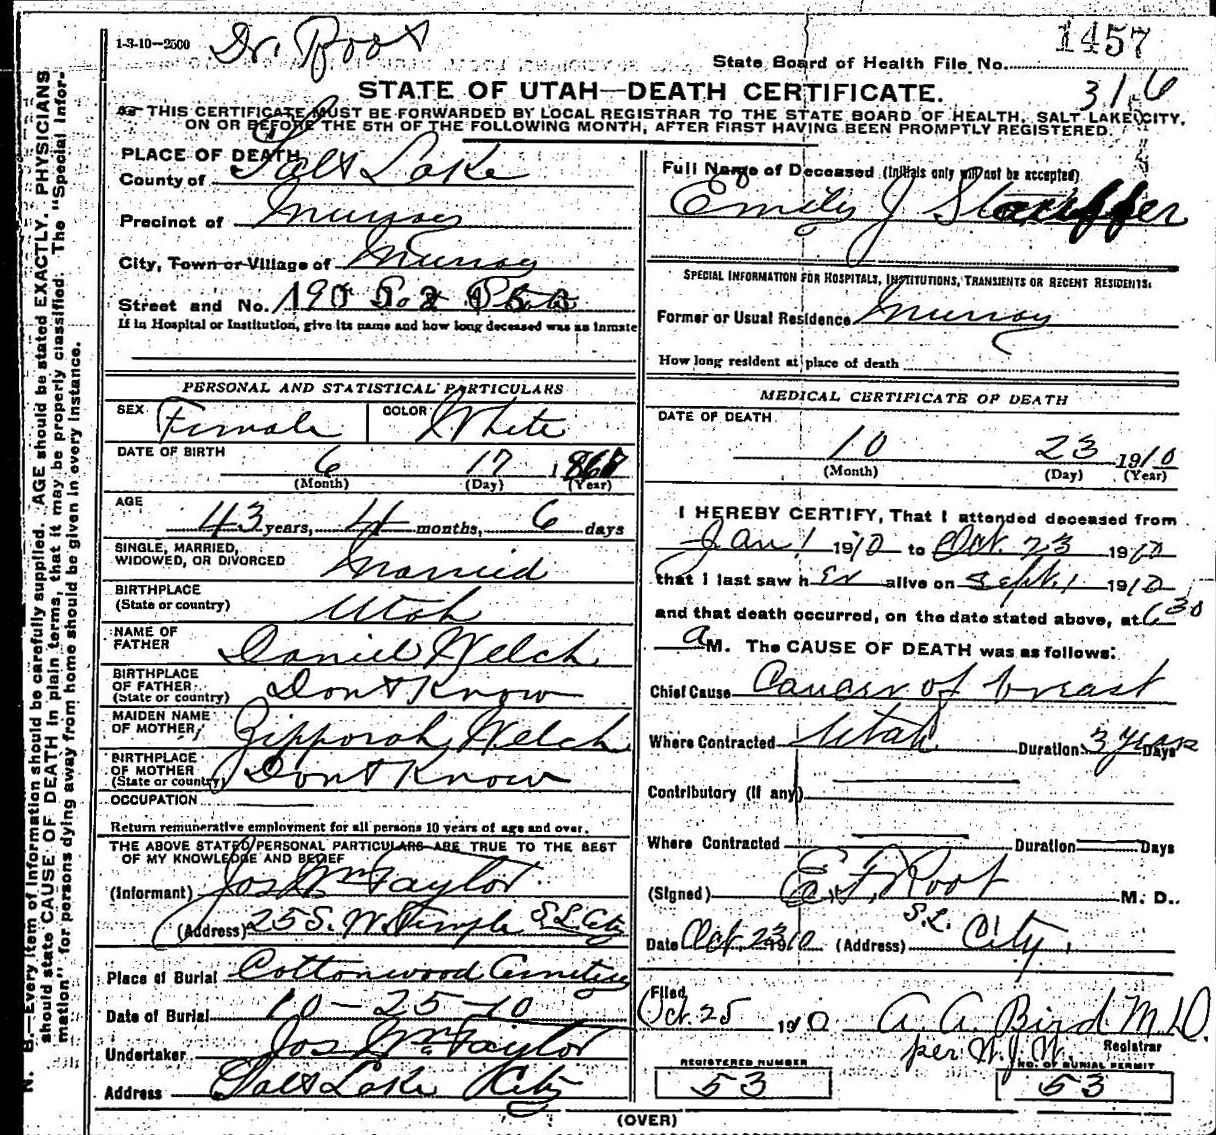 1-3-10-2500
Dr. Root
1457
State Board of Health File No.
316
STATE OF UTAH—DEATH CERTIFICATE.
THIS CERTIFICATE MUST BE FORWARDED BY LOCAL REGISTRAR TO THE STATE BOARD OF HEALTH, SALT LAKE CITY,
ON OR BEFORE THE 5TH OF THE FOLLOWING MONTH, AFTER FIRST HAVING BEEN PROMPTLY REGISTERED.
PLACE OF DEATH
County of Salt Lake
Precinct of Murray
City, Town or Village of Murray
Street and No.
If in Hospital or Institution, give its name and how long deceased was as inmate
Full Name of Deceased (Initials only will not be accepted)
Emily J Stauffer
SPECIAL INFORMATION FOR HOSPITALS, INSTITUTIONS, TRANSIENTS OR RECENT RESIDENTS:
Former or Usual Residence Murray
How long resident at place of death
PERSONAL AND STATISTICAL PARTICULARS
SEX Female COLOR White
DATE OF BIRTH 6 17 1867
(Month) (Day) (Year)
AGE 43 years, 4 months, 6 days
SINGLE, MARRIED,
WIDOWED, OR DIVORCED Married
BIRTHPLACE
(State or country) Utah
NAME OF
FATHER Daniel Welch
BIRTHPLACE
OF FATHER
(State or country) Dont Know
MAIDEN NAME
OF MOTHER Zipporah Welch
BIRTHPLACE
OF MOTHER
(State or country) Dont Know
OCCUPATION
Return remunerative employment for all persons 10 years of age and over.
THE ABOVE STATED PERSONAL PARTICULARS ARE TRUE TO THE BEST
OF MY KNOWLEDGE AND BELIEF
(Informant) Jos Wm Taylor
(Address) 25 S. W. Temple S. L. City
Place of Burial Cottonwood Cemetery
Date of Burial 10-25-10
Undertaker Jos Wm Taylor
Address Salt Lake City
MEDICAL CERTIFICATE OF DEATH
DATE OF DEATH
10 23 1910
(Month) (Day) (Year)
I HEREBY CERTIFY, That I attended deceased from
Jan 1 1910 to Oct. 23 1910
that I last saw her alive on Sept. 1 1910
and that death occurred, on the date stated above, at 6 30
a M. The CAUSE OF DEATH was as follows:
Chief Cause Cancer of breast
Where Contracted Utah Duration 3 years Days
Contributory (if any)
Where Contracted Duration Days
(Signed) E. F. Root M. D.
Date Oct. 23 1910 (Address) S. L. City.
Filed
Oct. 25 1910 A. A. Bird M.D.
per W. J. W. Registrar
REGISTERED NUMBER
53
NO. OF BURIAL PERMIT
53
(OVER)
N. B.—Every item of information should be carefully supplied. AGE should be stated EXACTLY. PHYSICIANS
should state CAUSE OF DEATH in plain terms, that it may be properly classified. The "Special Infor-
mation" for persons dying away from home should be given in every instance.